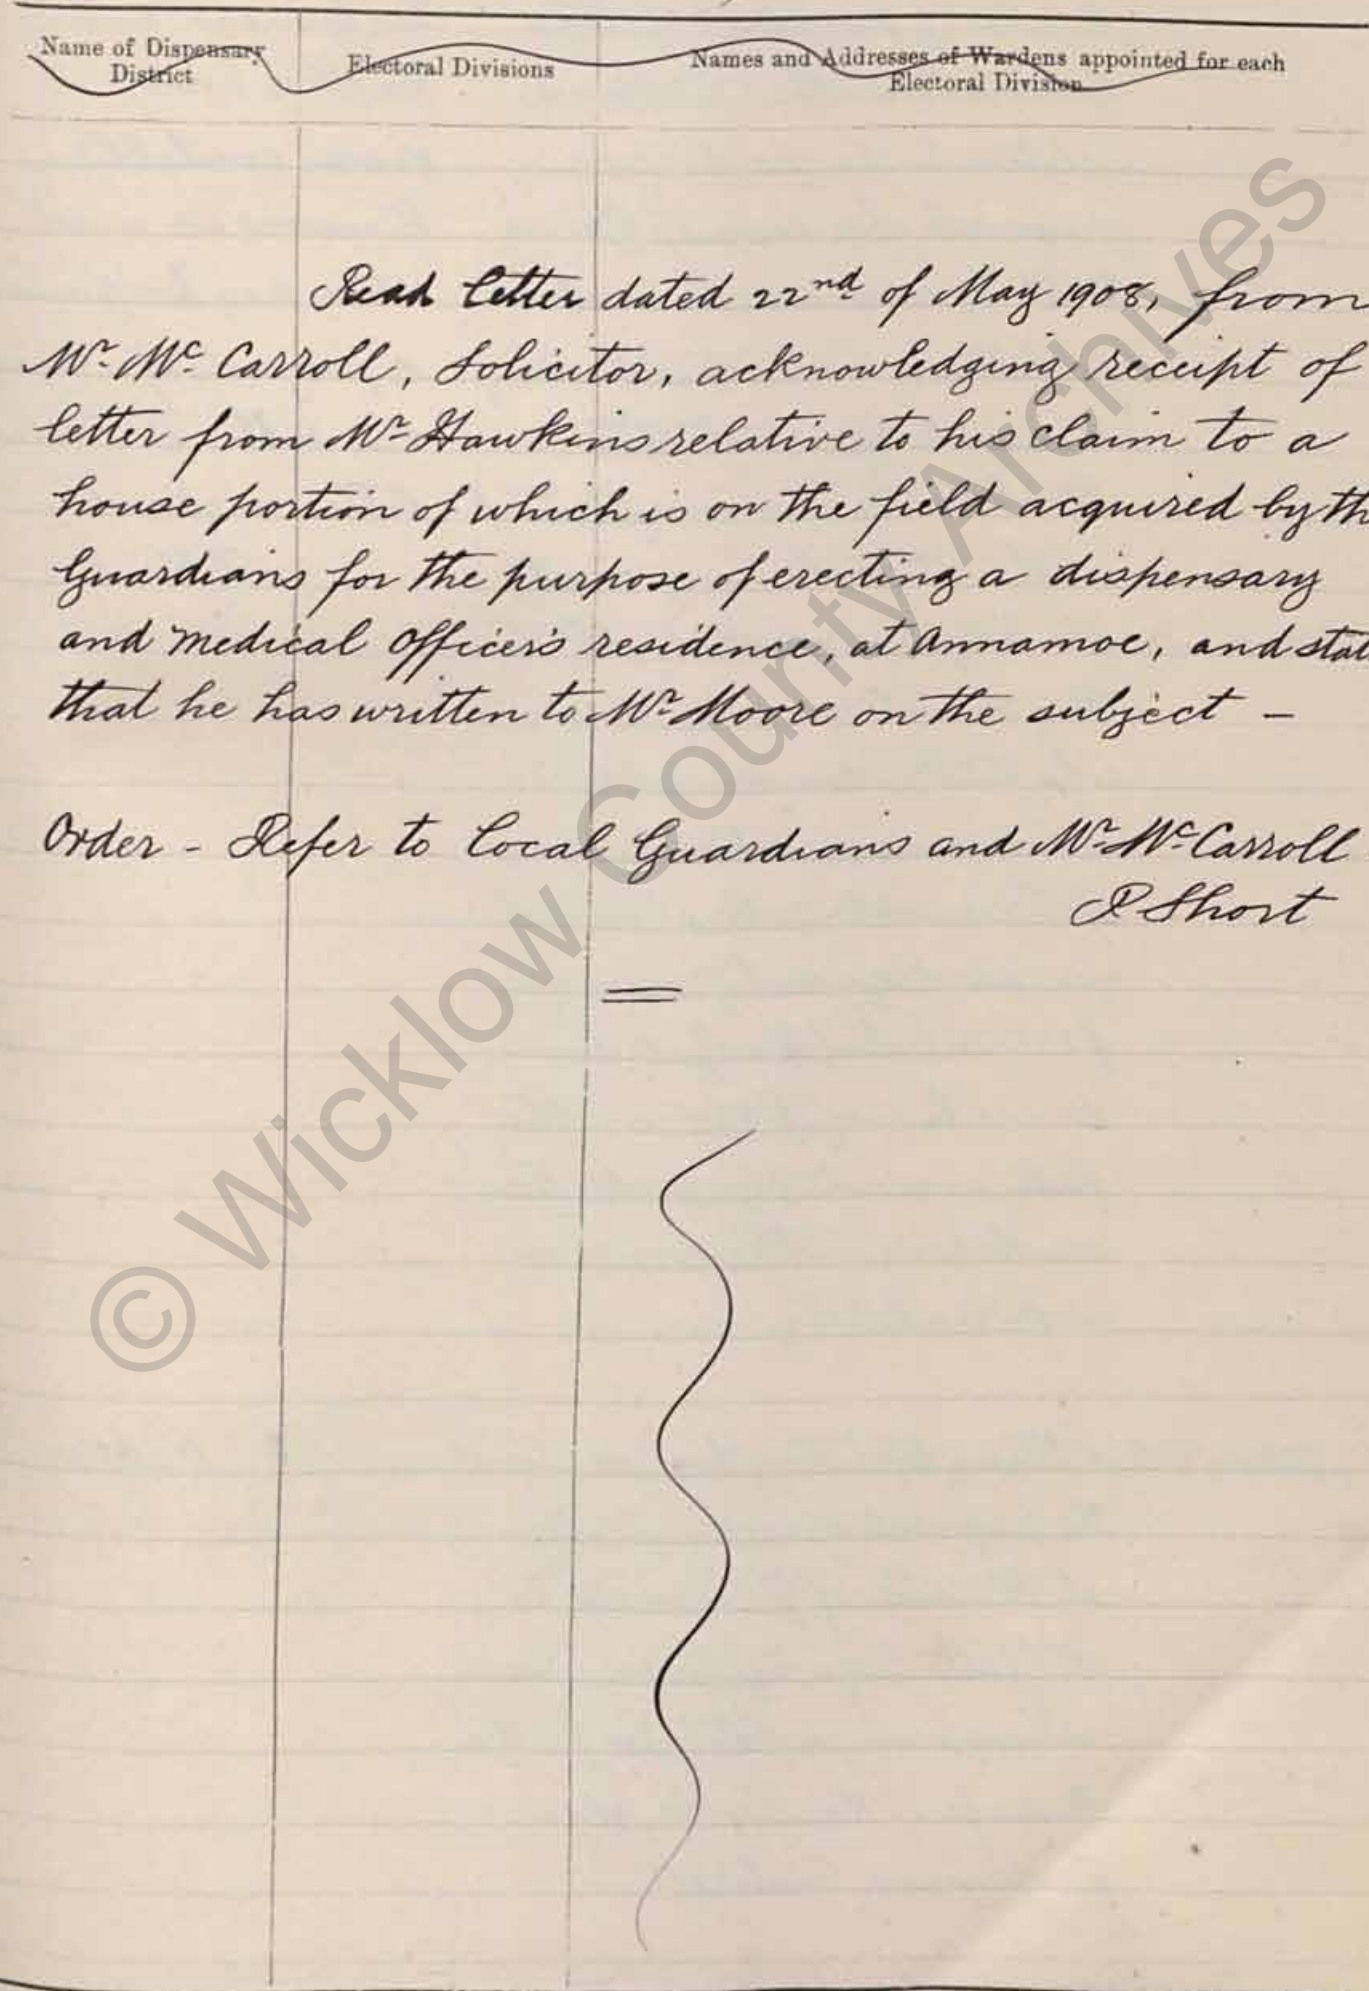 Name of Dispensary District
Electoral Divisions
Names and Addresses of Wardens appointed for each Electoral Division
Read letter dated 22nd of May 1908, from
Mr. Mc. Carroll, Solicitor, acknowledging receipt of
letter from Mr Hawkins relative to his claim to a
house portion of which is on the field acquired by th
Guardians for the purpose of erecting a dispensary
and medical officer's residence, at Annamoe, and stat
that he has written to Mr Moore on the subject -
Order - Refer to Local Guardians and Mr. McCarroll
P Short
© Wicklow County Archives